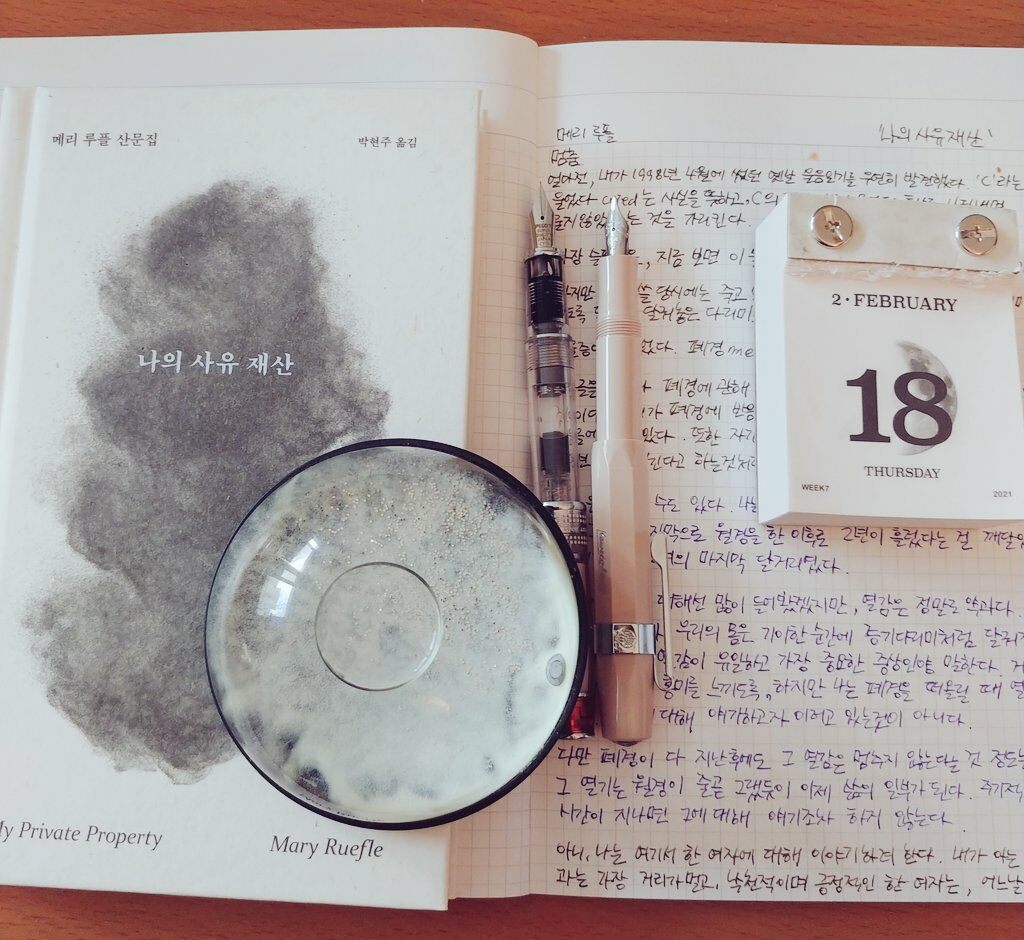 메리 루플 산문집
박현주 옮김
나의 사유 재산
My Private Property
Mary Ruefle
메리 루플 '나의 사유 재산'
멈춤
얼마전, 내가 1998년 4월에 썼던 옛날 울음일기를 우연히 발견했다. 'C'라는
울었다 cried는 사실을 뜻하고, C의
것을 가리킨다.
지금 보면 이
당시에는 죽고
달궈놓은 다리미
없다. 폐경
폐경에 관해
폐경에 반응
있다. 또한 자기
하는것처럼
수도 있다. 나는
마지막으로 월경을 한 이후로 2년이 흘렀다는 걸 깨달았
마지막 달거리였다.
많이 들어봤겠지만, 열감은 정말로 약과다.
우리의 몸은 기이한 순간에 증기다리미처럼 달궈
유일하고 가장 중요한 증상인양 말한다.
흥미를 느끼도록, 하지만 나는 폐경을 떠올릴 때
대해 얘기하고자 이러고 있는것이 아니다.
다만 폐경이 다 지난후에도 그 열감은 멈추지 않는다는 것 정도는
그 열기는 월경이 줄곧 그랬듯이 이제 삶의 일부가 된다. 주기적
시간이 지나면 그에 대해 얘기조차 하지 않는다.
아니, 나는 여기서 한 여자에 대해 이야기하려 한다. 내가 아는
과는 가장 거리가 멀고, 낙천적이며 긍정적인 한 여자는, 어느날
2·FEBRUARY
18
THURSDAY
WEEK7
2021